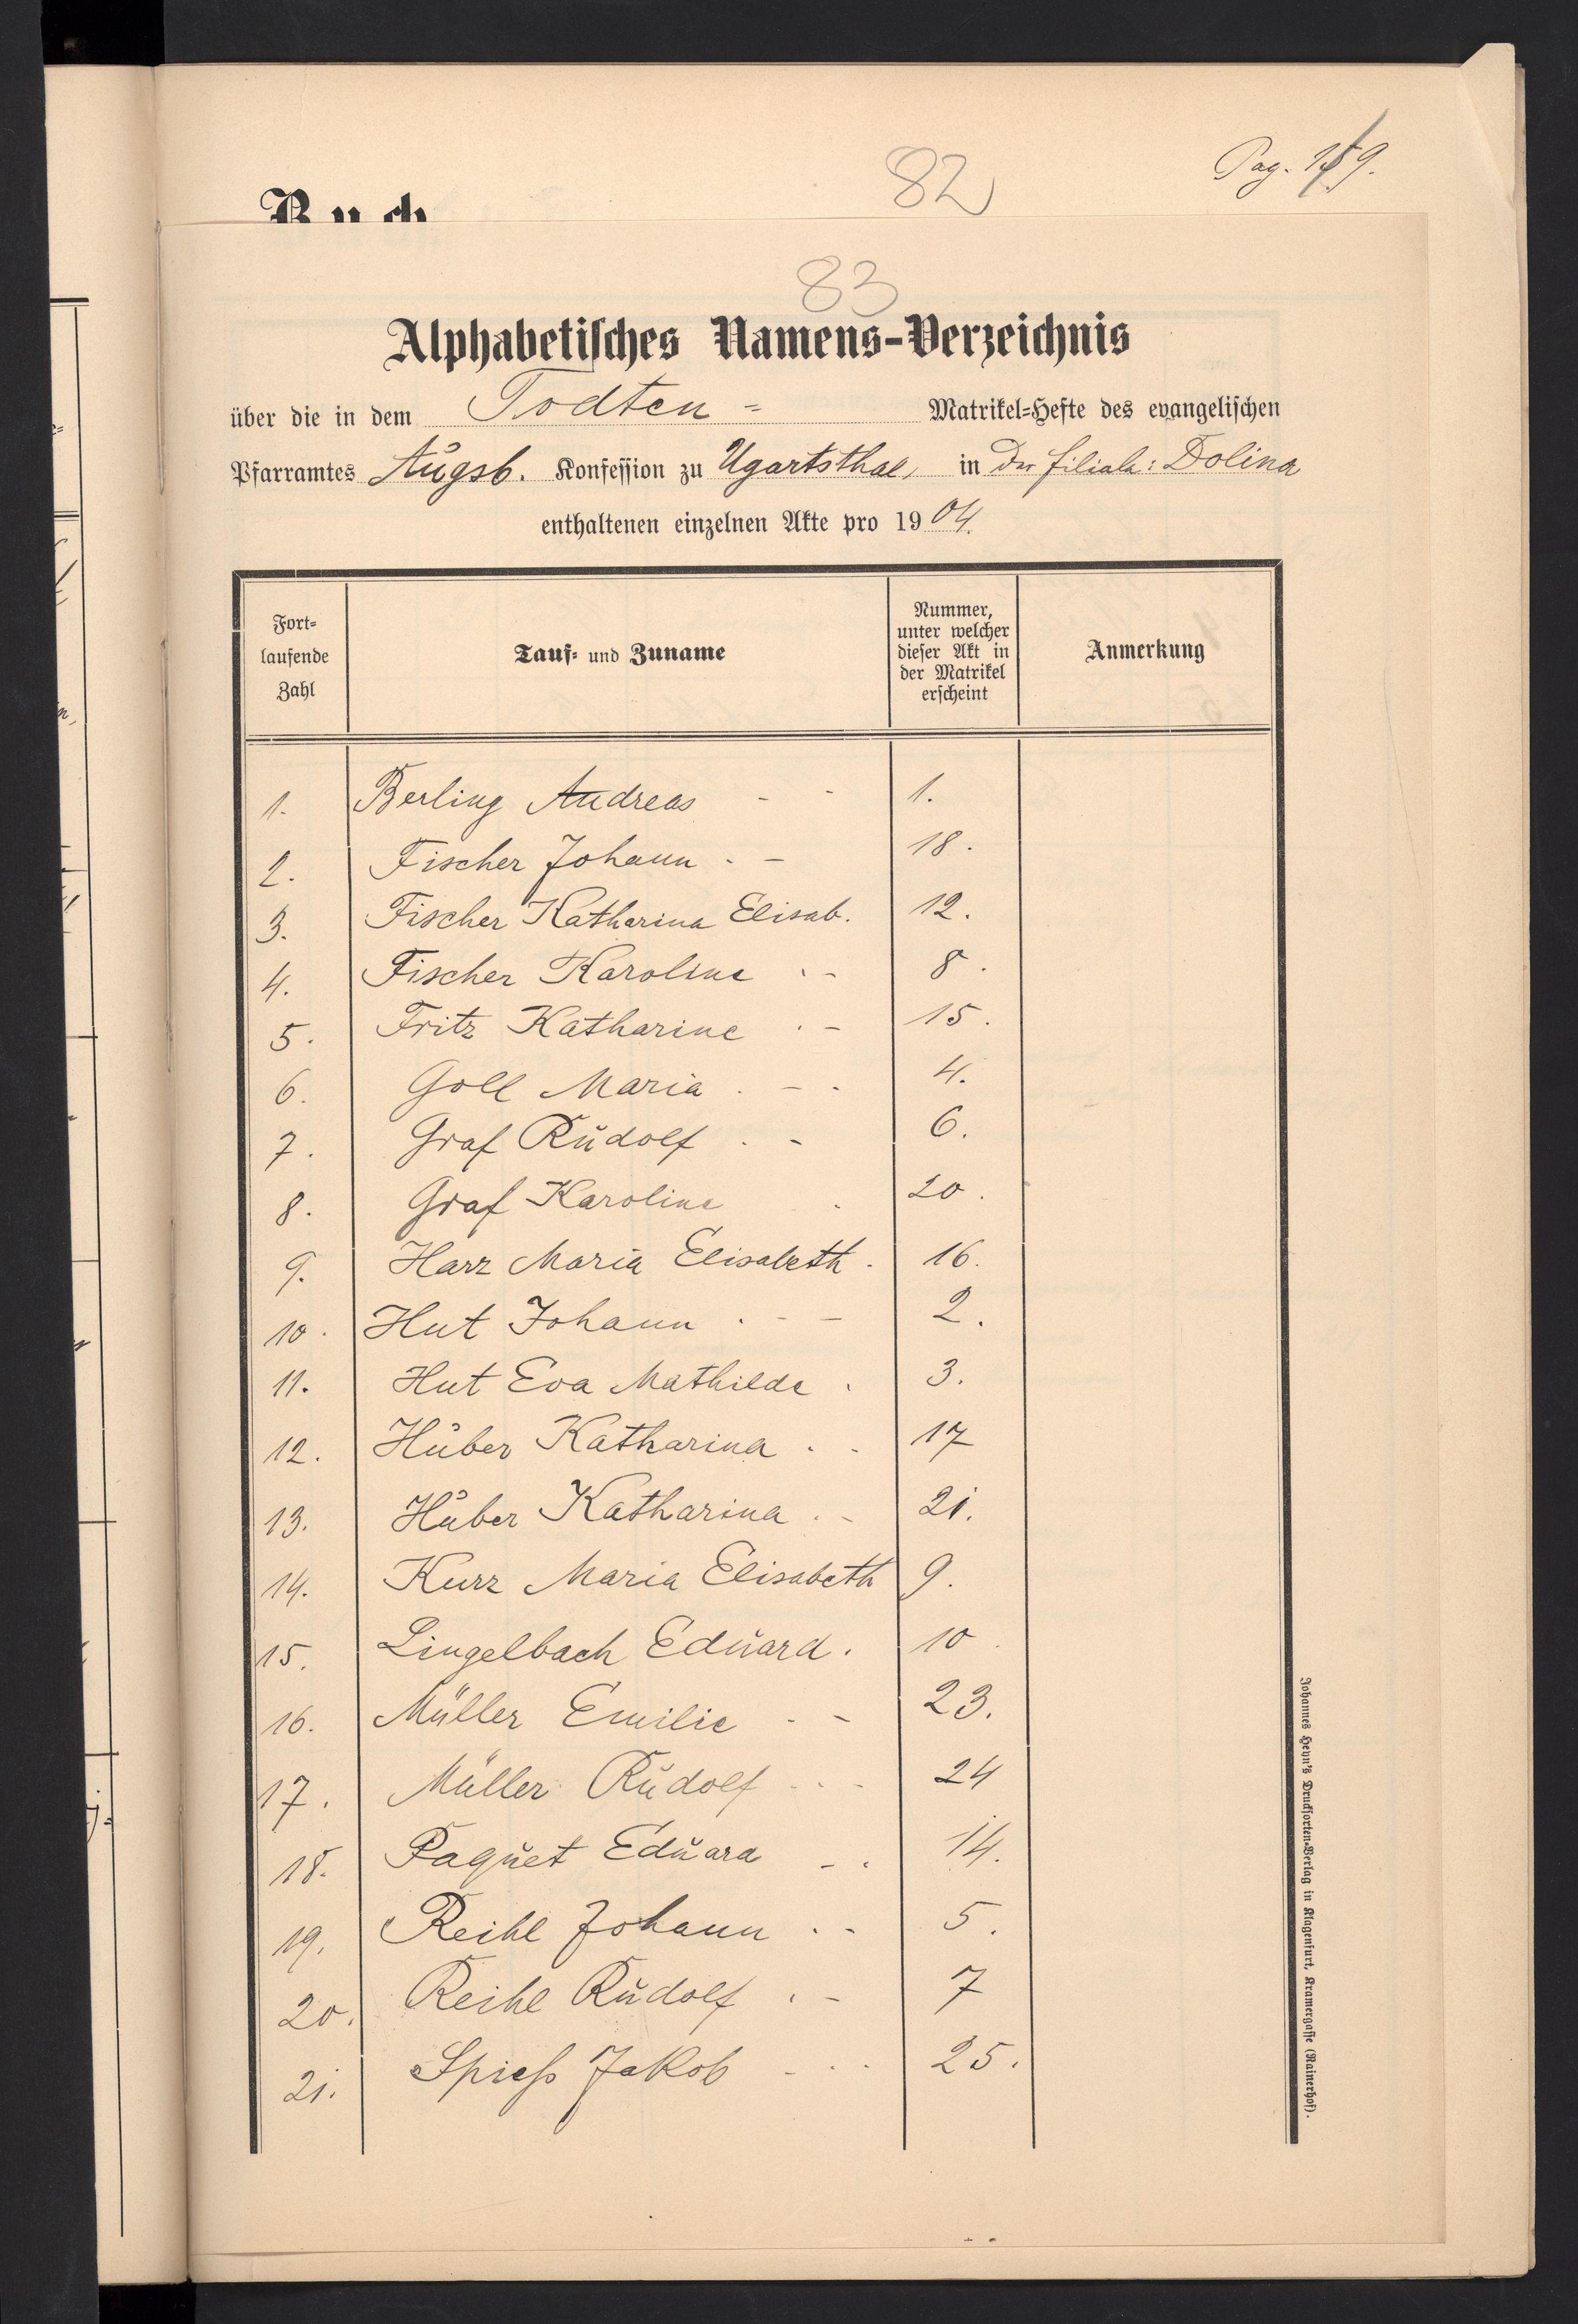 82
Pag. 159.
Buch
83
Alphabetisches Namens-Verzeichnis
über die in dem Todten- Matrikel-Hefte des evangelischen
Pfarramtes Augsb. Konfession zu Ugartsthal, in der Filiale: Dolina
enthaltenen einzelnen Akte pro 1904.
Fort-
laufende
Zahl
Tauf- und Zuname
Nummer,
unter welcher
dieser Akt in
der Matrikel
erscheint
Anmerkung
1. Berling Andreas - - 1.
2. Fischer Johann . - 18.
3. Fischer Katharina Elisab. 12.
4. Fischer Karoline . - 8.
5. Fritz Katharine . - 15.
6. Goll Maria . - . 4.
7. Graf Rudolf . - 6.
8. Graf Karoline . 20.
9. Harz Maria Elisabeth . 16.
10. Hut Johann . - - 2.
11. Hut Eva Mathilde . 3.
12. Huber Katharina . . 17
13. Huber Katharina . - 21.
14. Kurz Maria Elisabeth 9.
15. Lingelbach Eduard . 10.
16. Müller Emilie - - 23.
17. Müller Rudolf - - - 24
18. Paquet Eduard - . 14.
19. Reihl Johann . - 5.
20. Reihl Rudolf . - 7
21. Spieß Jakob - . . 25.
Johannes Heyn's Drucksorten-Verlag in Klagenfurt, Kramergasse (Rainerhof).